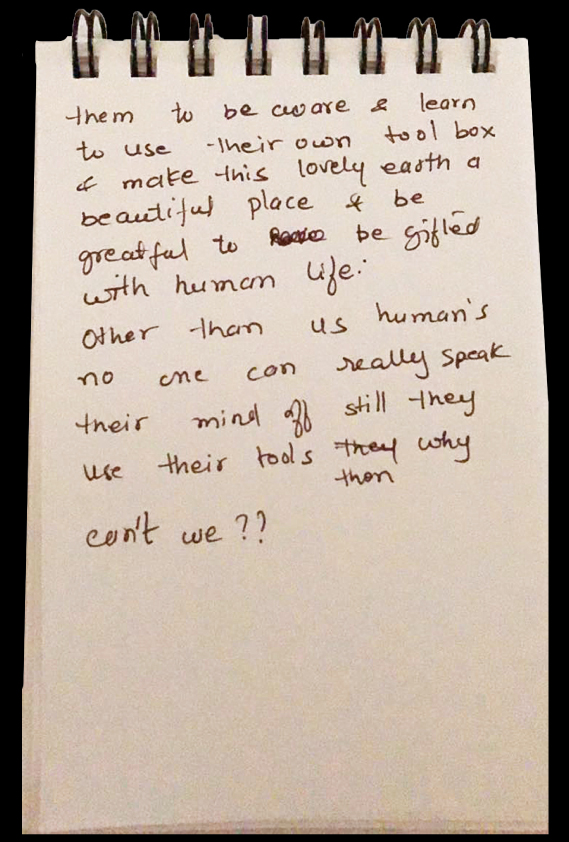 them to be aware & learn
to use their own tool box
& make this lovely earth a
beautiful place & be
greatful to be gifted
with human life.
Other than us human's
no one can really speak
their mind off still they
use their tools they why
then
can't we ??